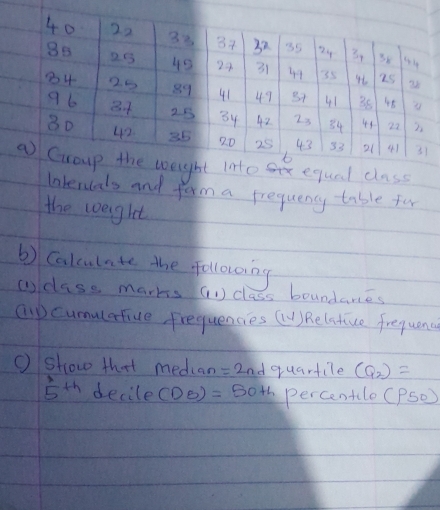 40 22 33 37 32 35 24 37 38 44
35 25 49 27 31 47 35 46 25
34 25 39 41 49 37 41 36 48
96 37 25 34 42 23 34 44 22
30 42 35 20 25 43 33 21 41 31
a) Group the weight into 6 equal class
Intervals and form a frequency table for
the weight
b) Calculate the following
(i) class marks (ii) class boundaries
(iii) Cumulative frequencies (iv) Relative frequenci
c) Show that median = 2nd quartile (Q2) =
5th decile (D5) = 50th percentile (P50)